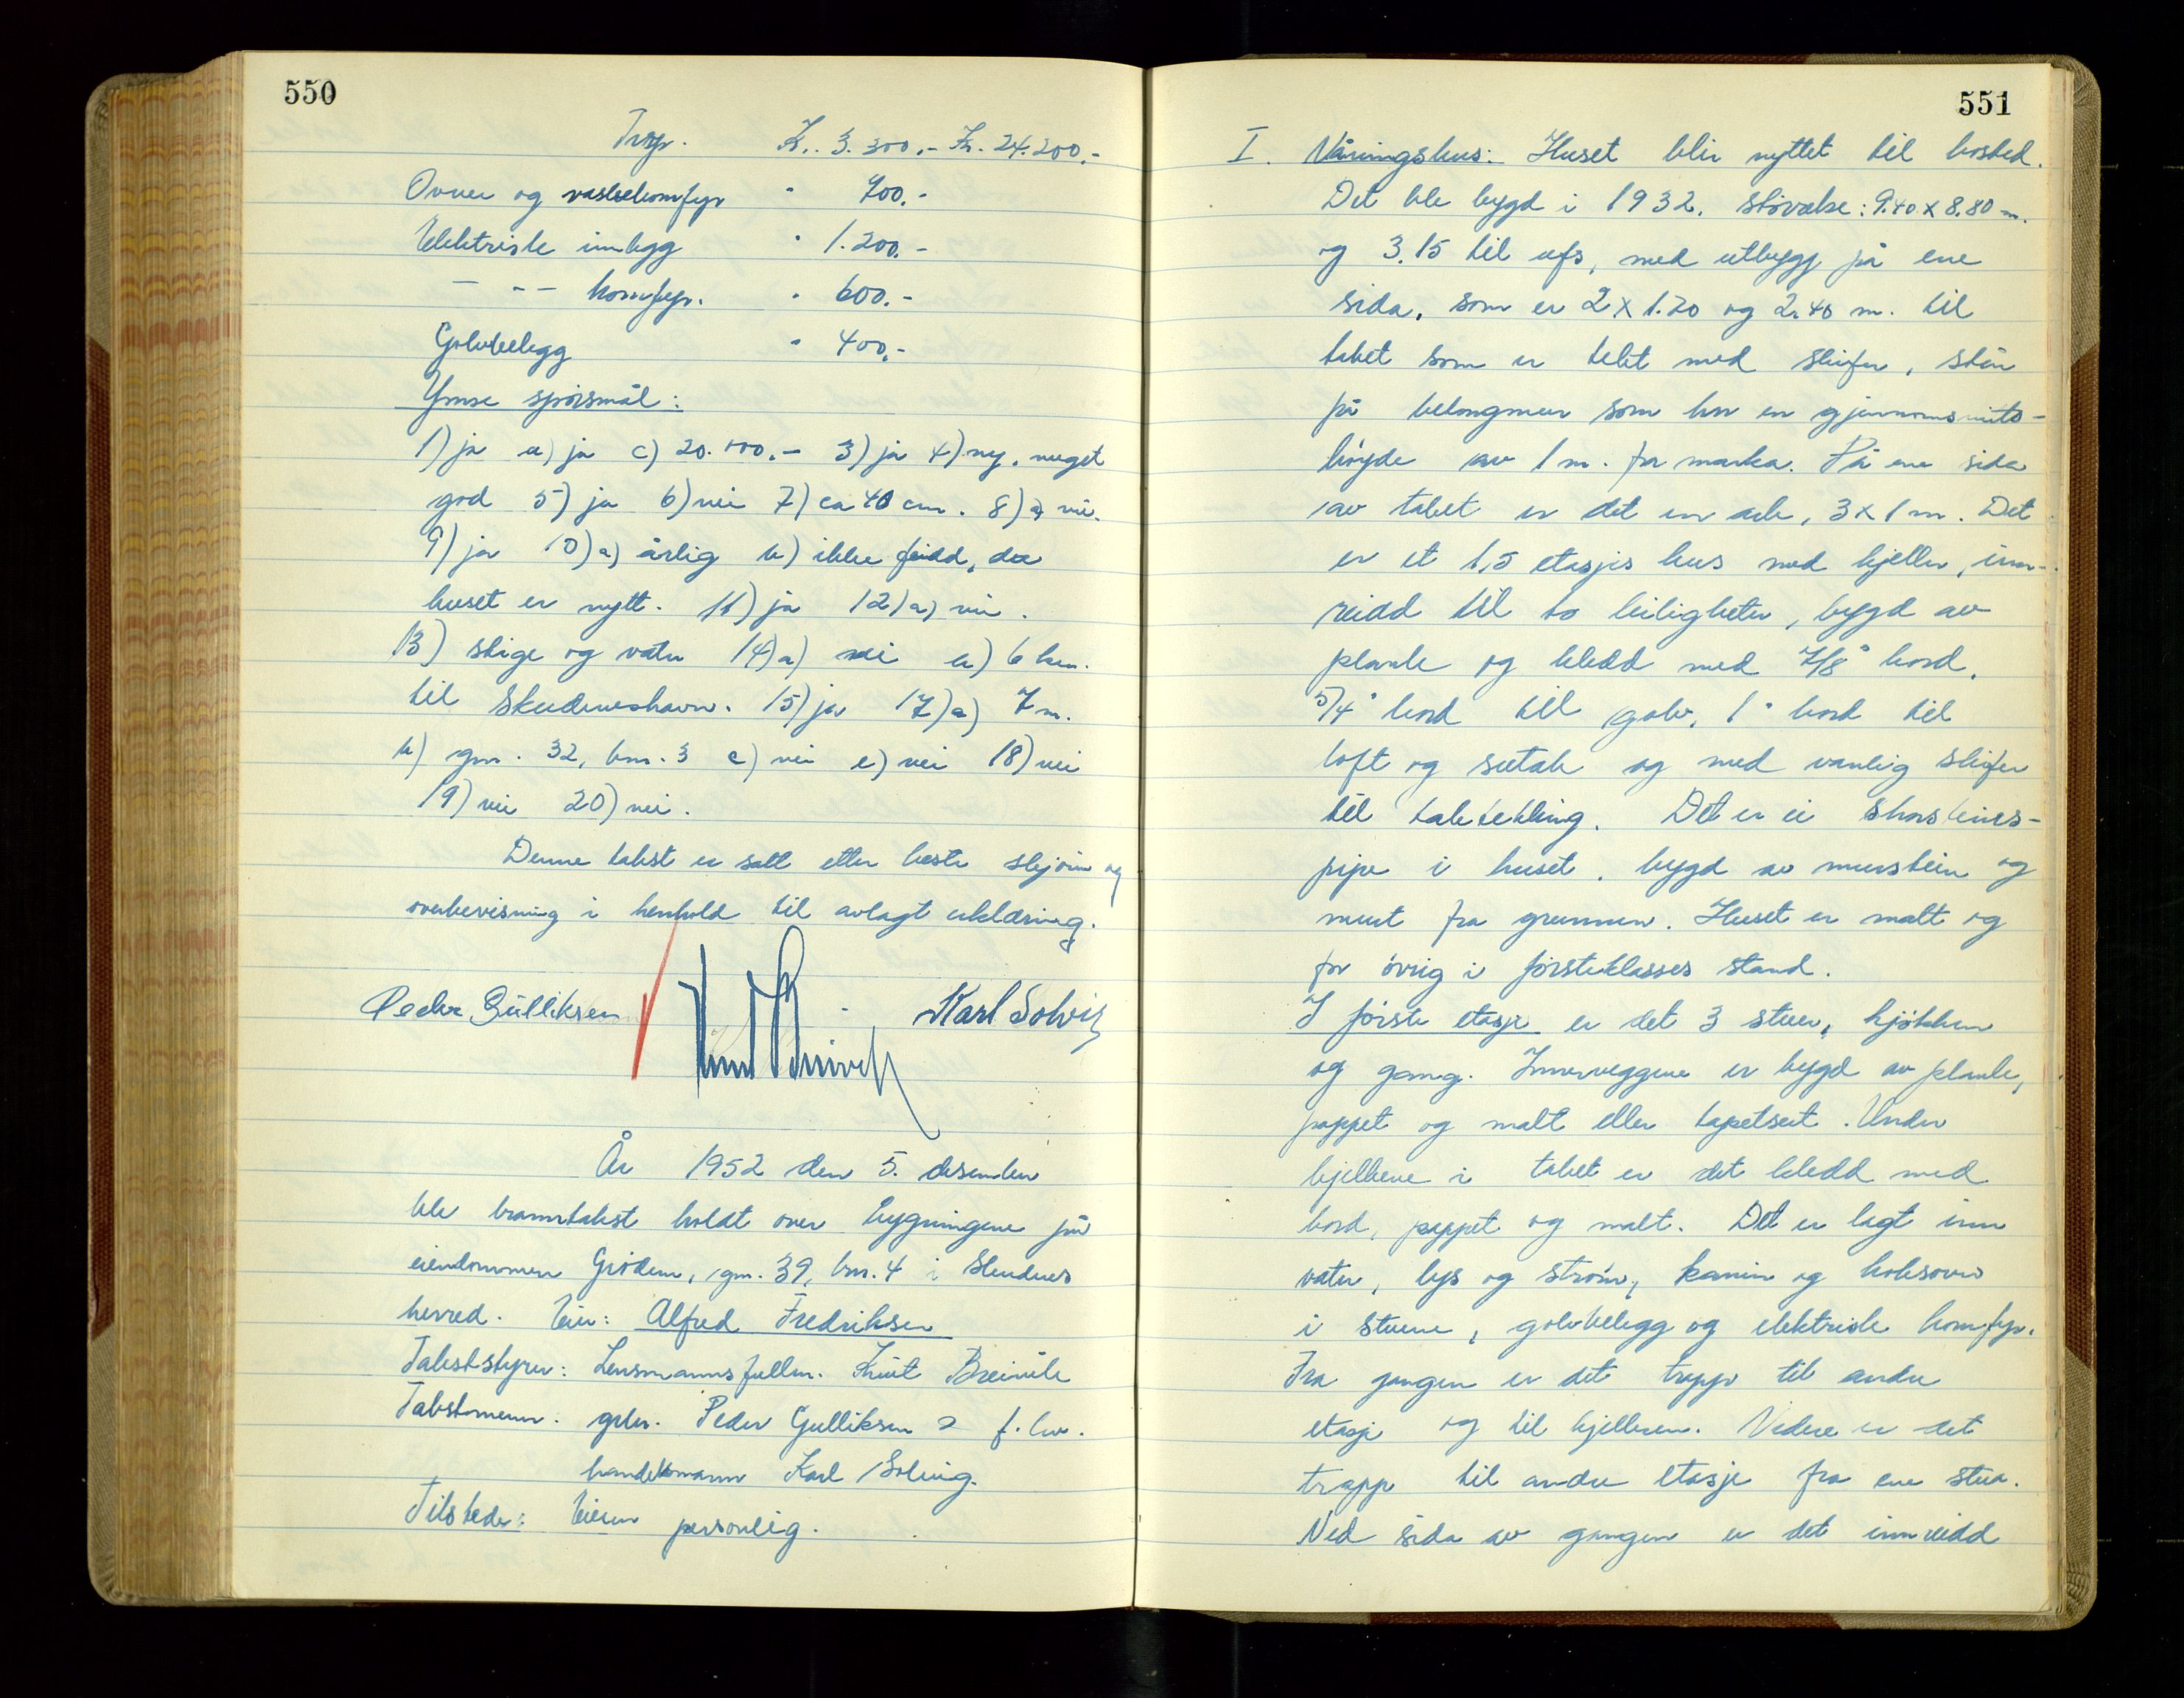 550
Trsp. Kr. 3.300.- Kr. 24.200.-
Ovner og vaskekomfyr " 700.-
Elektriske innlegg " 1.200.-
— " — komfyr. " 600.-
Golvbelegg " 400.-
Ymse spörsmål:
1) ja a) ja c) 20.000.- 3) ja 4) ny, meget
god 5) ja 6) nei 7) ca 40 cm. 8) a) nei.
9) ja 10) a) årlig b) ikke feidd, da
huset er nytt. 11) ja 12) a) nei.
13) stige og vatn 14) a) nei b) 6 km.
til Skudeneshavn. 15) ja 17) a) 7 m.
b) gnr. 32, bnr. 3 c) nei e) nei 18) nei
19) nei 20) nei.
Denne takst er satt etter beste skjönn og
overbevisning i henhold til avlagt erklæring.
Peder Gulliksen Knut Breivik Karl Solvig
År 1952 den 5. desember
ble branntakst holdt over bygningene på
eiendommen Grödem, gnr. 39, bnr. 4 i Skudenes
herred. Eier: Alfred Fredriksen
Takststyrer: Lensmannsfullm. Knut Breivik
Takstmenn: grbr. Peder Gulliksen og f. hv.
handelsmann Karl Solvig.
Tilstede: Eieren personlig.
551
I. Våningshus: Huset blir nyttet til bosted.
Det ble bygd i 1932. Störrelse: 9.40 x 8.80 m.
og 3.15 til ufs, med utbygg på ene
sida, som er 2 x 1.20 og 2.40 m. til
taket som er tekt med skifer, står
på betongmur som har en gjennomsnitts-
höyde av 1 m. fra marka. På ene sida
av taket er det en ark, 3 x 1 m. Det
er et 1,5 etasjes hus med kjeller, inn-
reidd til to leiligheter, bygd av
planke og kledd med 7/8" bord.
5/4" bord til golv, 1" bord til
loft og sutak og med vanlig skifer
til taktekking. Det er ei skorsteins-
pipe i huset, bygd av murstein og
murt fra grunnen. Huset er malt og
for övrig i försteklasses stand.
I förste etasje er det 3 stuer, kjökken
og gang. Innerveggene er bygd av planke,
pappet og malt eller tapetsert. Under
bjelkene i taket er det kledd med
bord, pappet og malt. Det er lagt inn
vatn, lys og ström, kamin og koksovn
i stuene, golvbelegg og elektrisk komfyr.
Fra gangen er det trapp til andre
etasje og til kjelleren. Videre er det
trapp til andre etasje fra ene stua.
Ved sida av gangen er det innreidd